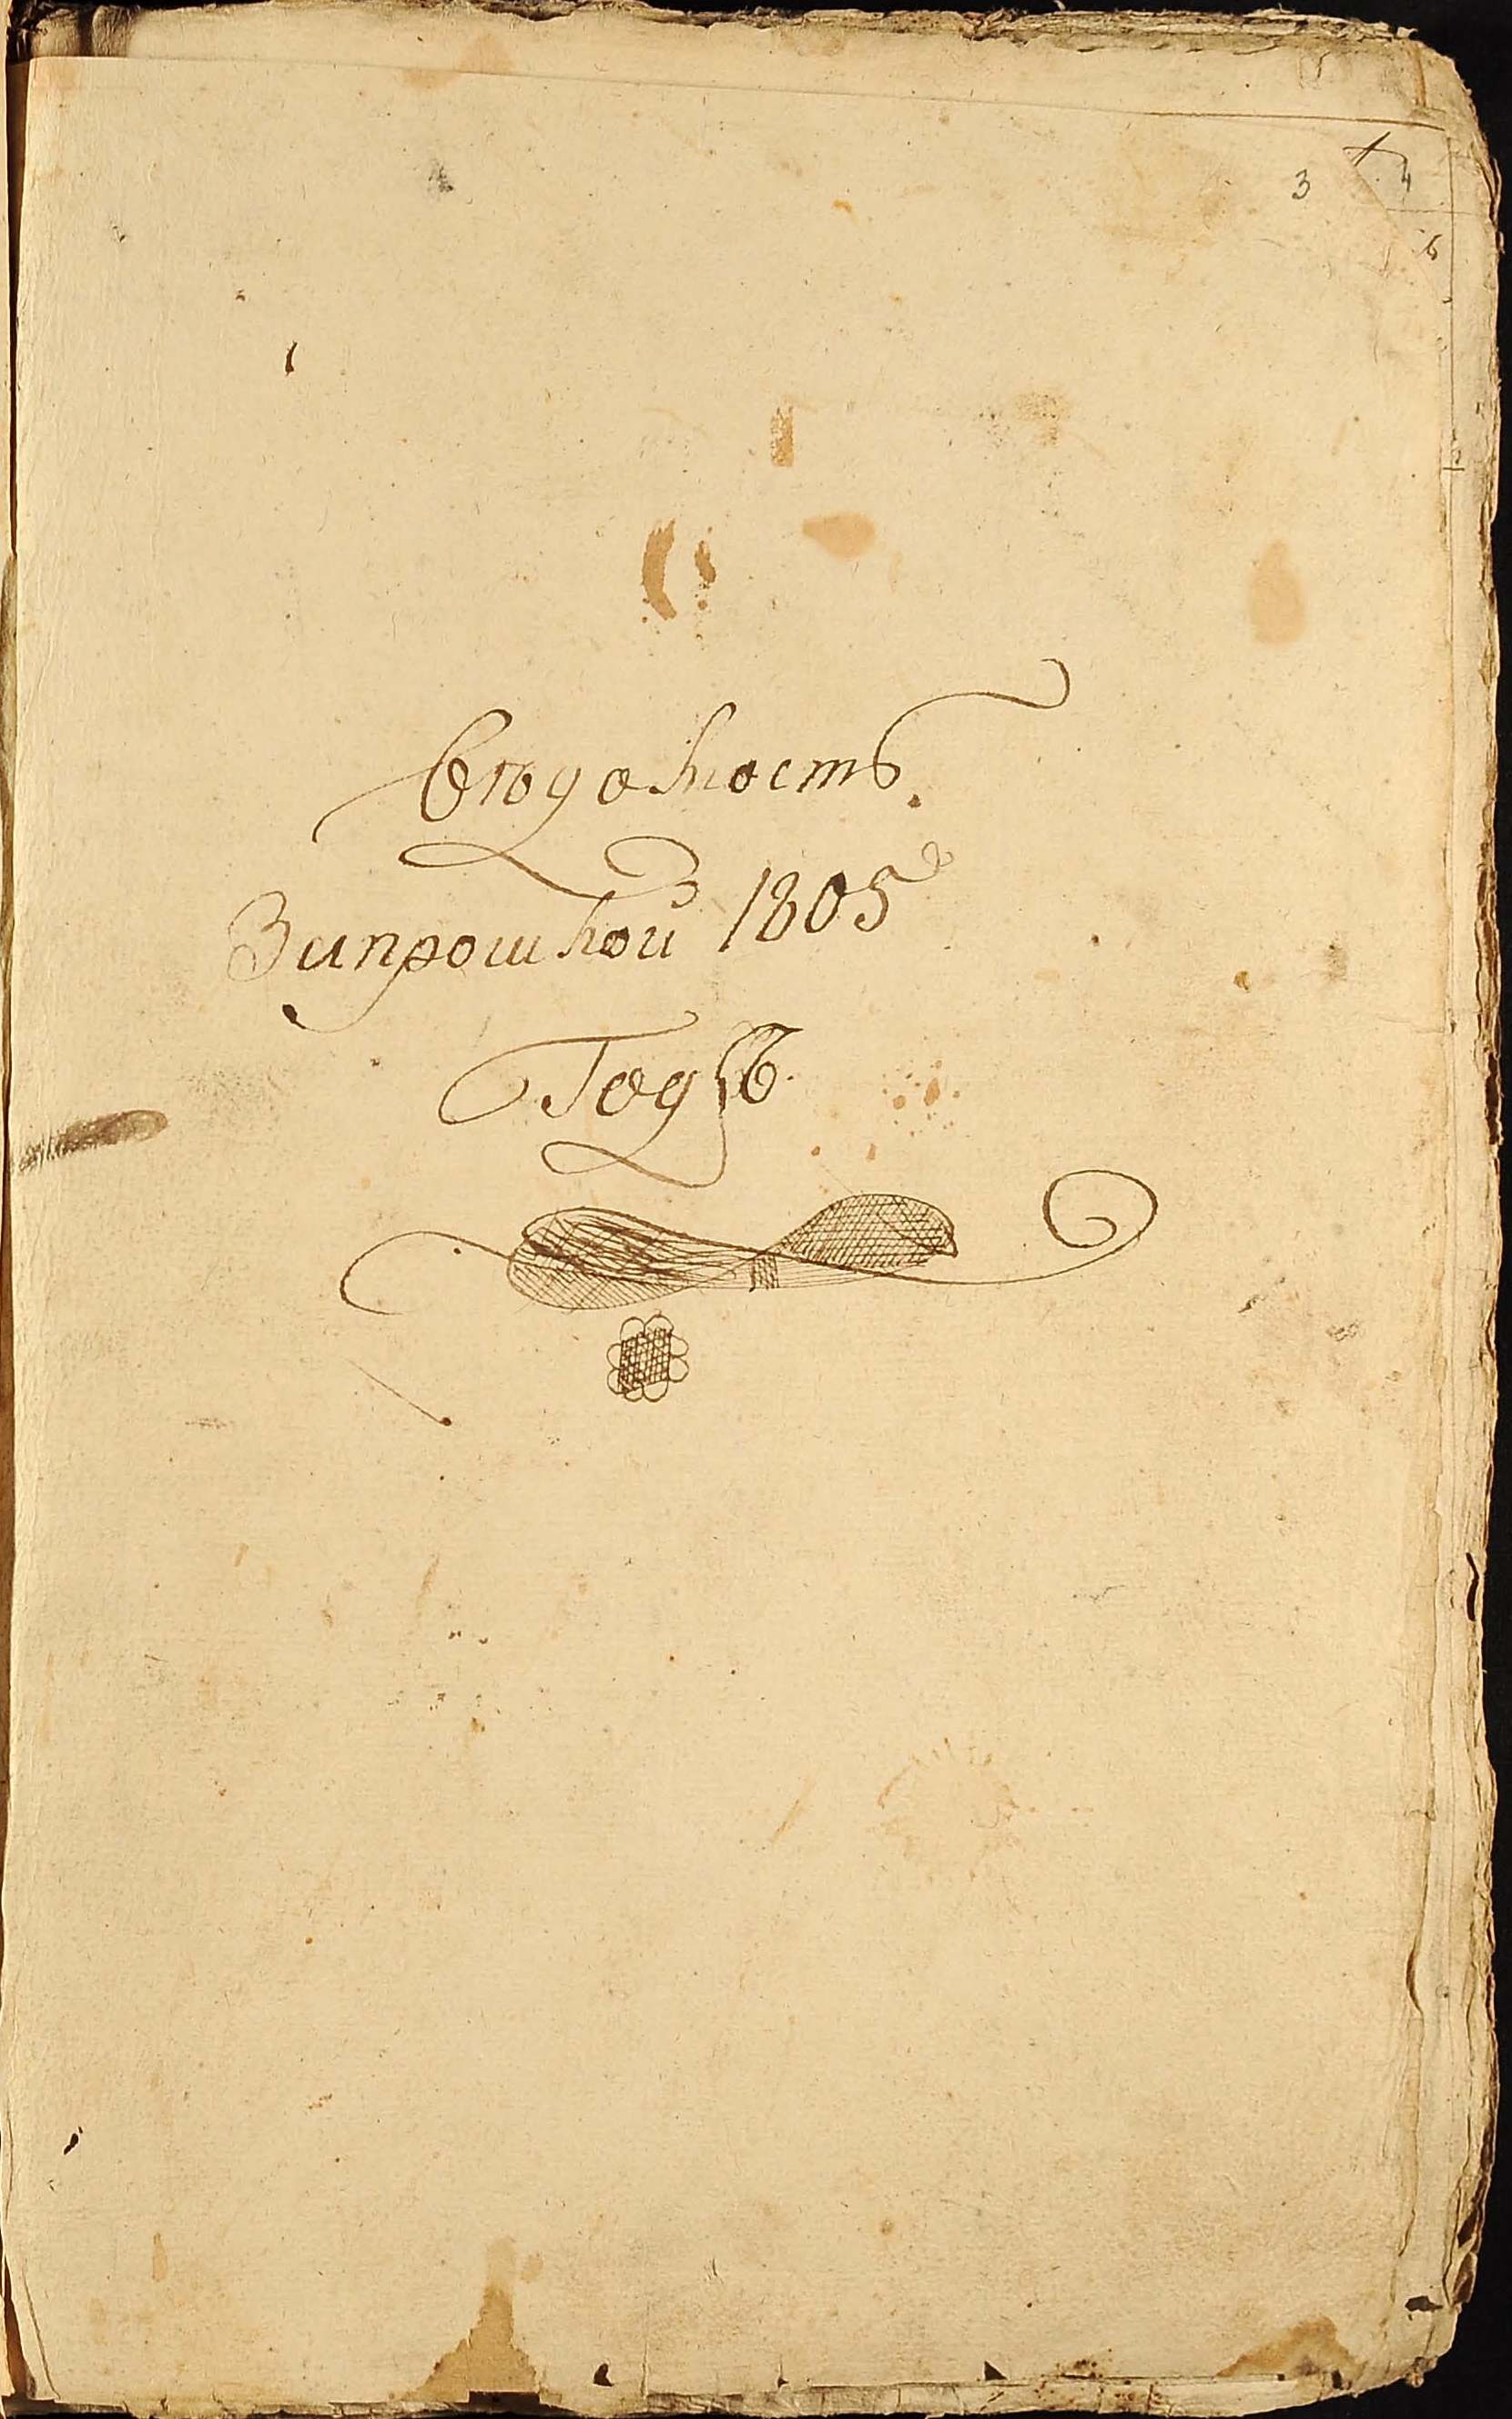 3 4
6
Вѣдомость
Зипрошкой 1805
Годъ